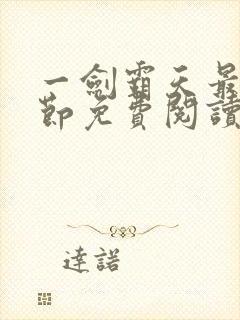 一劍霸天最
節免費閱讀
達諾